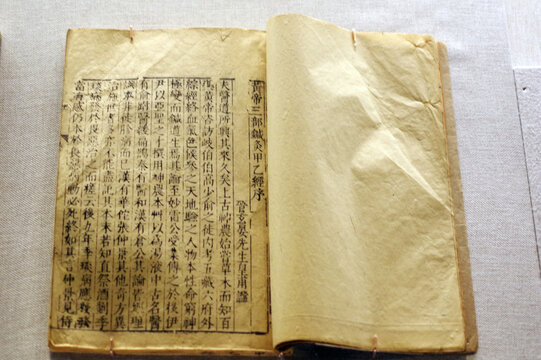 黃帝三部鍼灸甲乙經序
晉玄晏先生皇甫謐
夫醫道所興其來久矣上古神農始嘗草木而知百
藥黃帝咨訪岐伯伯高少俞之徒內考五藏六府外
綜經絡血氣色候參之天地驗之人物本性命窮神
極變而鍼道生焉其論至妙雷公受業傳之於後伊
尹以亞聖之才撰用神農本草以為湯液中古名醫
有俞跗醫緩扁鵲秦有醫和漢有倉公其論皆經理
識本非徒診病而已漢有華佗張仲景其他奇方異
治施世者多亦不能盡記其本末若知直祭酒劉季
琰病發於畏惡治之而瘥云後九年季琰病應發發
當有感仍本於畏惡病動必死終如其言仲景見侍